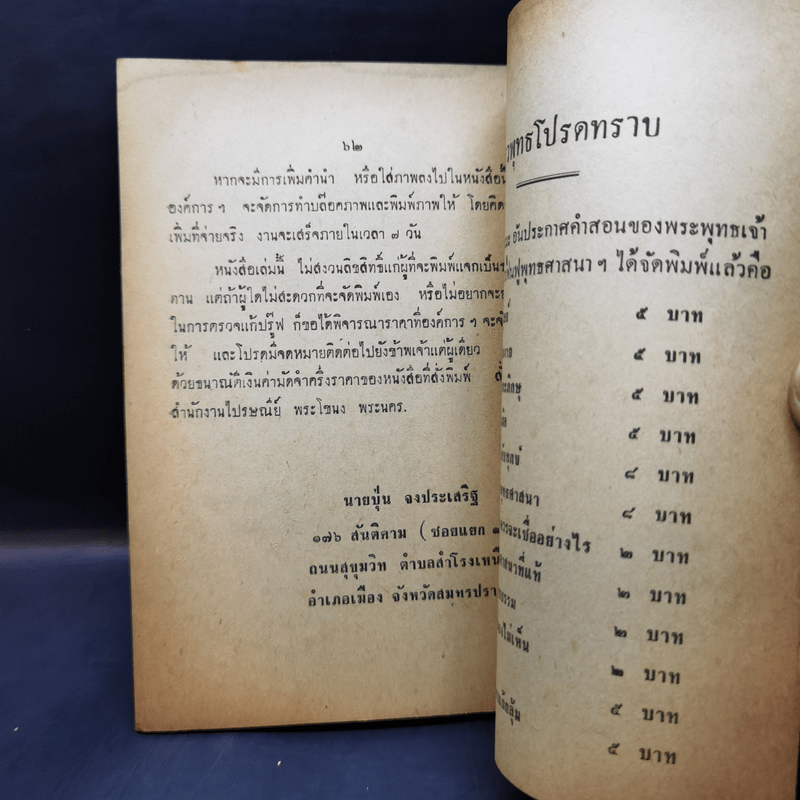 ๖๒
หากจะมีการเพิ่มคำนำ หรือใส่ภาพลงไปในหนังสือนี้
องค์การ ฯ จะจัดการทำบล๊อคภาพและพิมพ์ภาพให้ โดยคิด
เพิ่มที่จ่ายจริง งานจะเสร็จภายในเวลา ๗ วัน
หนังสือเล่มนี้ ไม่สงวนลิขสิทธิ์แก่ผู้ที่จะพิมพ์แจกเป็น
ทาน แต่ถ้าผู้ใดไม่สะดวกที่จะจัดพิมพ์เอง หรือไม่อยากจะ
ในการตรวจแก้ปรู๊ฟ ก็ขอได้พิจารณาราคาที่องค์การ ฯ จะ
ให้ และโปรดมีจดหมายติดต่อไปยังข้าพเจ้าแต่ผู้เดียว
ด้วยธนาณัติเงินค่ามัดจำครึ่งราคาของหนังสือที่สั่งพิมพ์
สำนักงานไปรษณีย์ พระโขนง พระนคร.
นายปุ่น จงประเสริฐ
๑๗๖ สันติคาม ( ซอยแยก ๑
ถนนสุขุมวิท ตำบลสำโรงเหนือ
อำเภอเมือง จังหวัดสมุทรปรา
พุทธโปรดทราบ
อันประกาศคำสอนของพระพุทธเจ้า
ฟื้นฟูพุทธศาสนา ฯ ได้จัดพิมพ์แล้วคือ
๕ บาท
๕ บาท
๕ บาท
๕ บาท
๘ บาท
พุทธศาสนา ๘ บาท
ควรจะเชื่ออย่างไร ๒ บาท
ศาสนาที่แท้ ๒ บาท
ธรรม ๒ บาท
มองไม่เห็น ๒ บาท
๕ บาท
๕ บาท